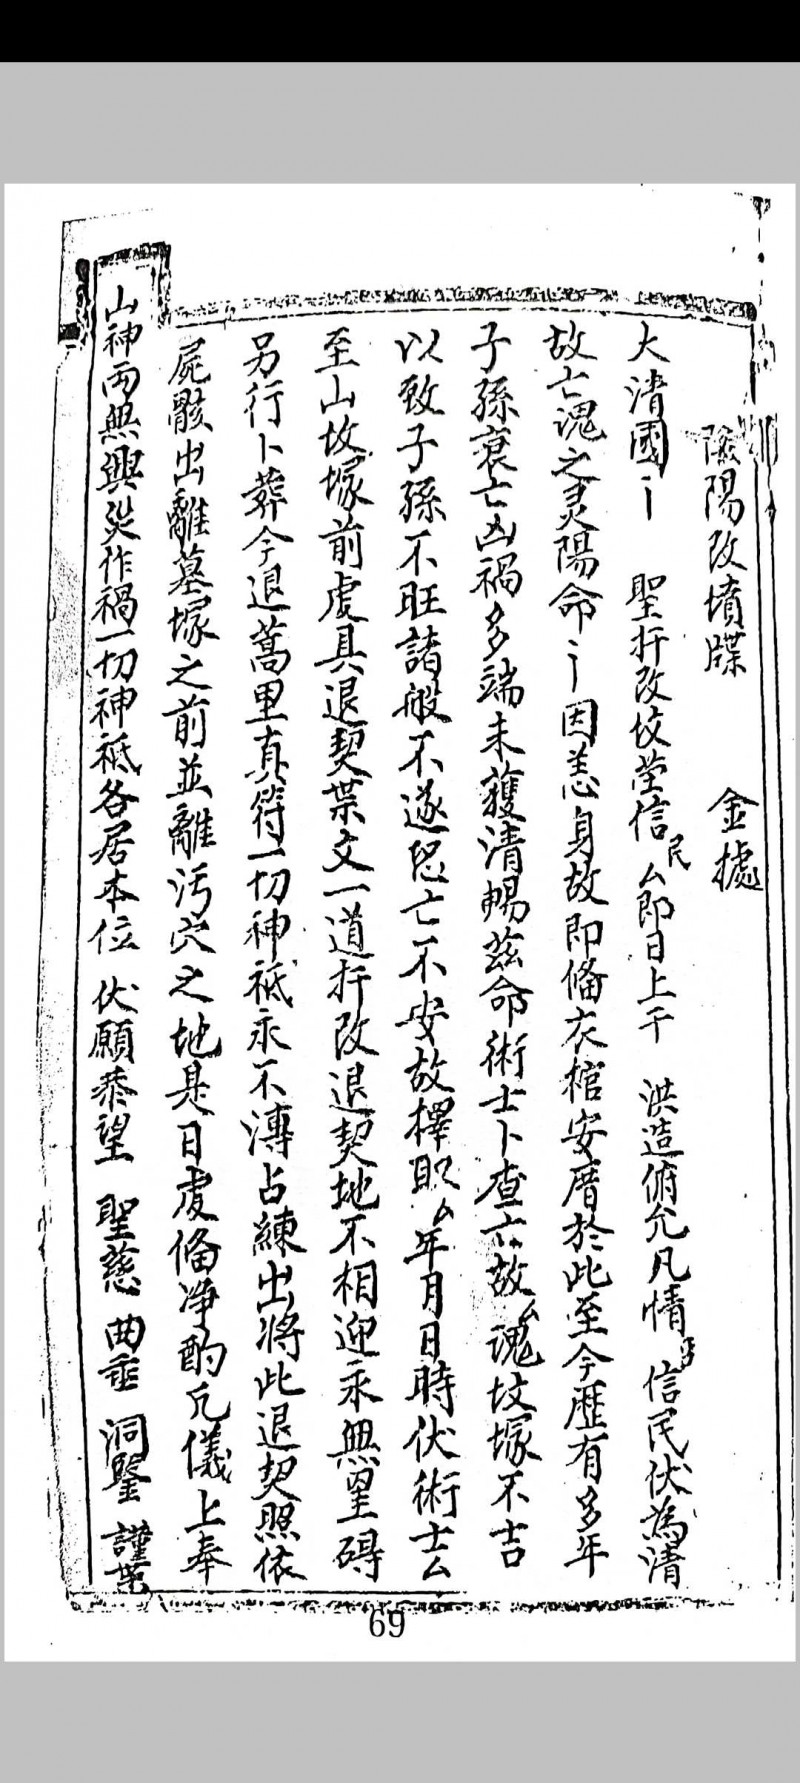 陰陽改墳牒　金據
大清國丨　聖扦改坟茔信民厶即日上干　洪造俯允凡情　信民伏為清
故亡魂之灵陽命丨因恙身故即俻衣棺安厝於此至今歷有多年
子孫衰亡凶禍多端未獲清暢茲命術士卜查亡故厶魂坟塚不吉
以致子孫不旺諸般不遂恐亡不安故擇取厶年月日時伏術士厶
至山故塚前虔具退契枼文一道扦改退契地不相迎永無罣碍
另行卜葬今退蒿里真符一切神祇永不漙占練出將此退契照依
屍骸出離墓塚之前並離污穴之地是日虔俻净酌凢儀上奉
山神丙無興災作禍一切神祇各居本位　伏願恭望　聖慈　曲垂　洞鑒　謹枼
69